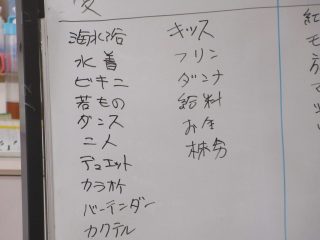 海水浴
水着
ビキニ
若もの
ダンス
二人
デュエット
カラオケ
バーテンダー
カクテル
キッス
フリン
ダンナ
給料
お金
株券
紅